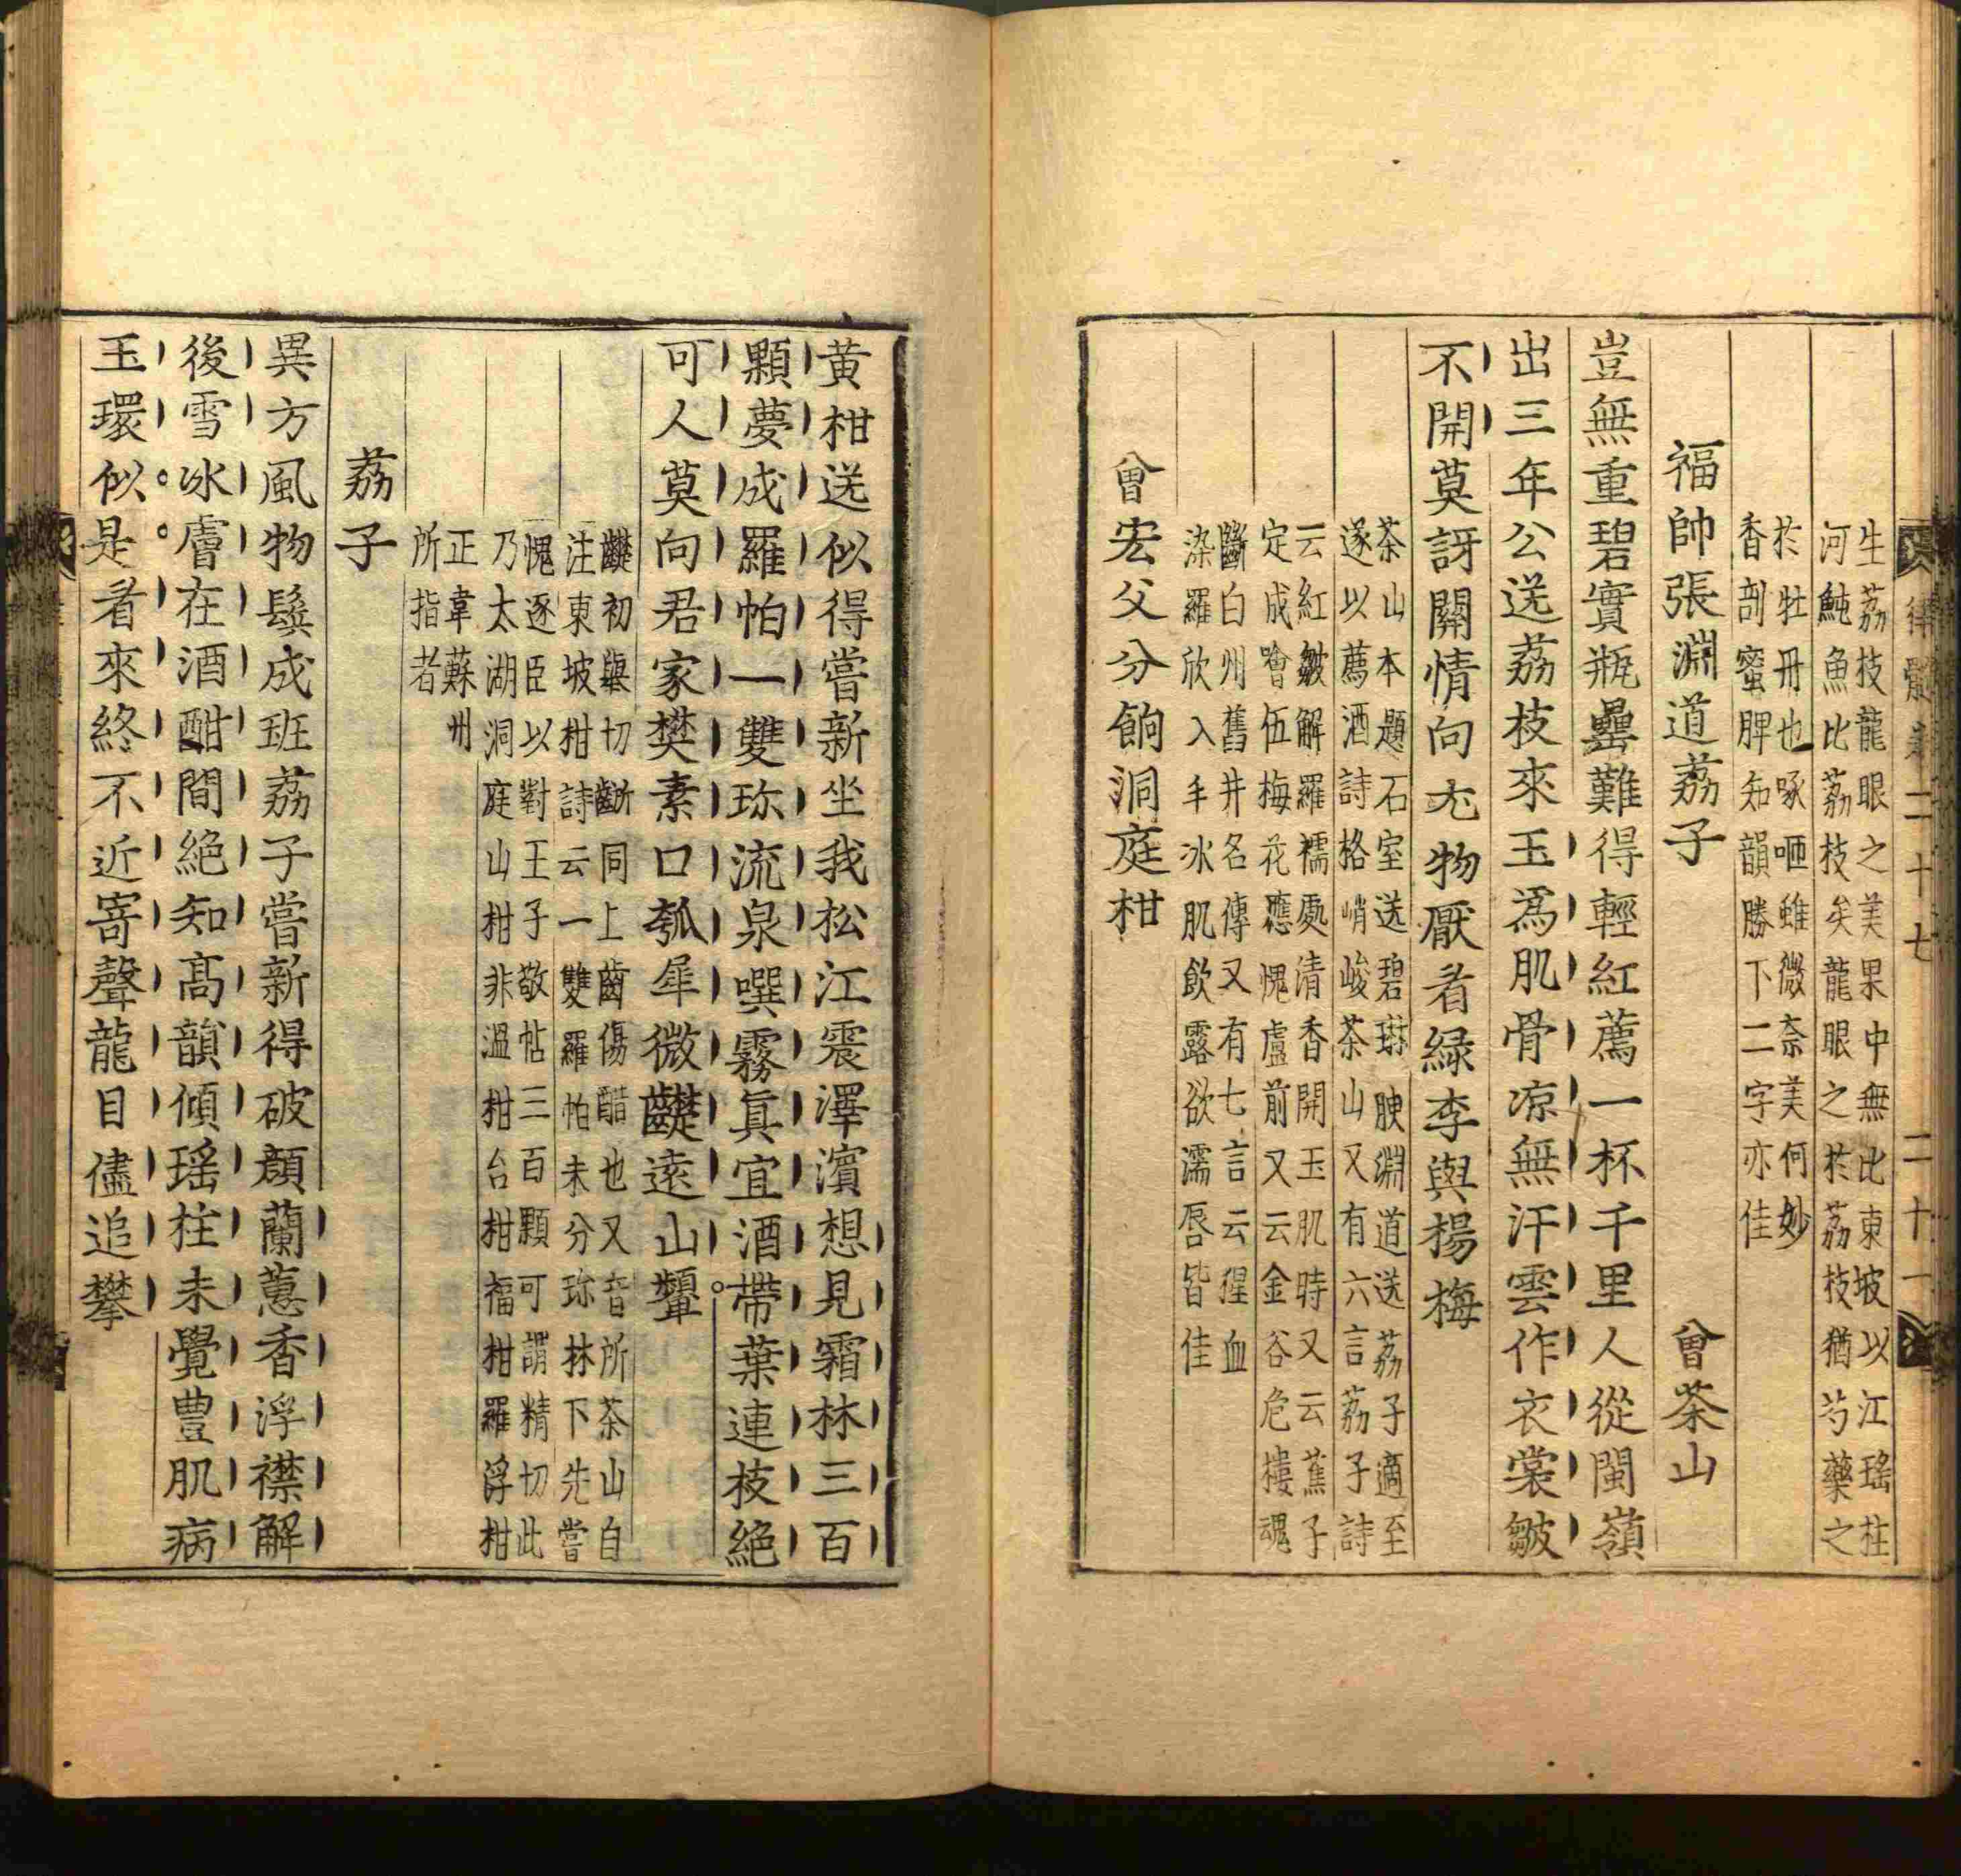 律髓卷二十七 二十一
生荔技龍眼之美果中無比東坡以江瑤柱
河魨魚比荔技矣龍眼之於荔技猶芍藥之
於牡丹也啄咂雖微奈美何妙
香剖蜜脾知韻勝下二字亦佳
福帥張淵道荔子 曾茶山
豈無重碧實瓶罍難得輕紅薦一杯千里人從閩嶺
出三年公送荔枝來玉為肌骨凉無汗雲作衣裳皺
不開莫訝關情向尤物厭看緑李與楊梅
茶山本題石室送碧琳腴淵道送荔子適至
遂以薦酒詩格峭峻茶山又有六言荔子詩
云紅皺解羅襦處清香開玉肌時又云蕉子
定成噲伍梅花應愧盧前又云金谷危樓魂
斷白州舊井名傳又有七言云猩血
染羅欣入手冰肌飲露欲濡唇皆佳
曾宏父分餉洞庭柑
黄柑送似得嘗新坐我松江震澤濱想見霜林三百
顆夢成羅帕一雙珍流泉噀霧真宜酒帶葉連枝絶
可人莫向君家樊素口瓠犀微齼遠山顰
齼初舉切齭同上齒傷醋也又音所茶山自
注東坡柑詩云一雙羅帕未分珍林下先嘗
愧逐臣以對王子敬帖三百顆可謂精切此
乃太湖洞庭山柑非温柑台柑福柑羅浮柑
正韋蘇州
所指者
荔子
異方風物鬢成班荔子嘗新得破顔蘭蕙香浮襟解
後雪冰膚在酒酣間絶知髙韻傾瑶柱未覺豊肌病
玉環似是看來終不近寄聲龍目儘追攀